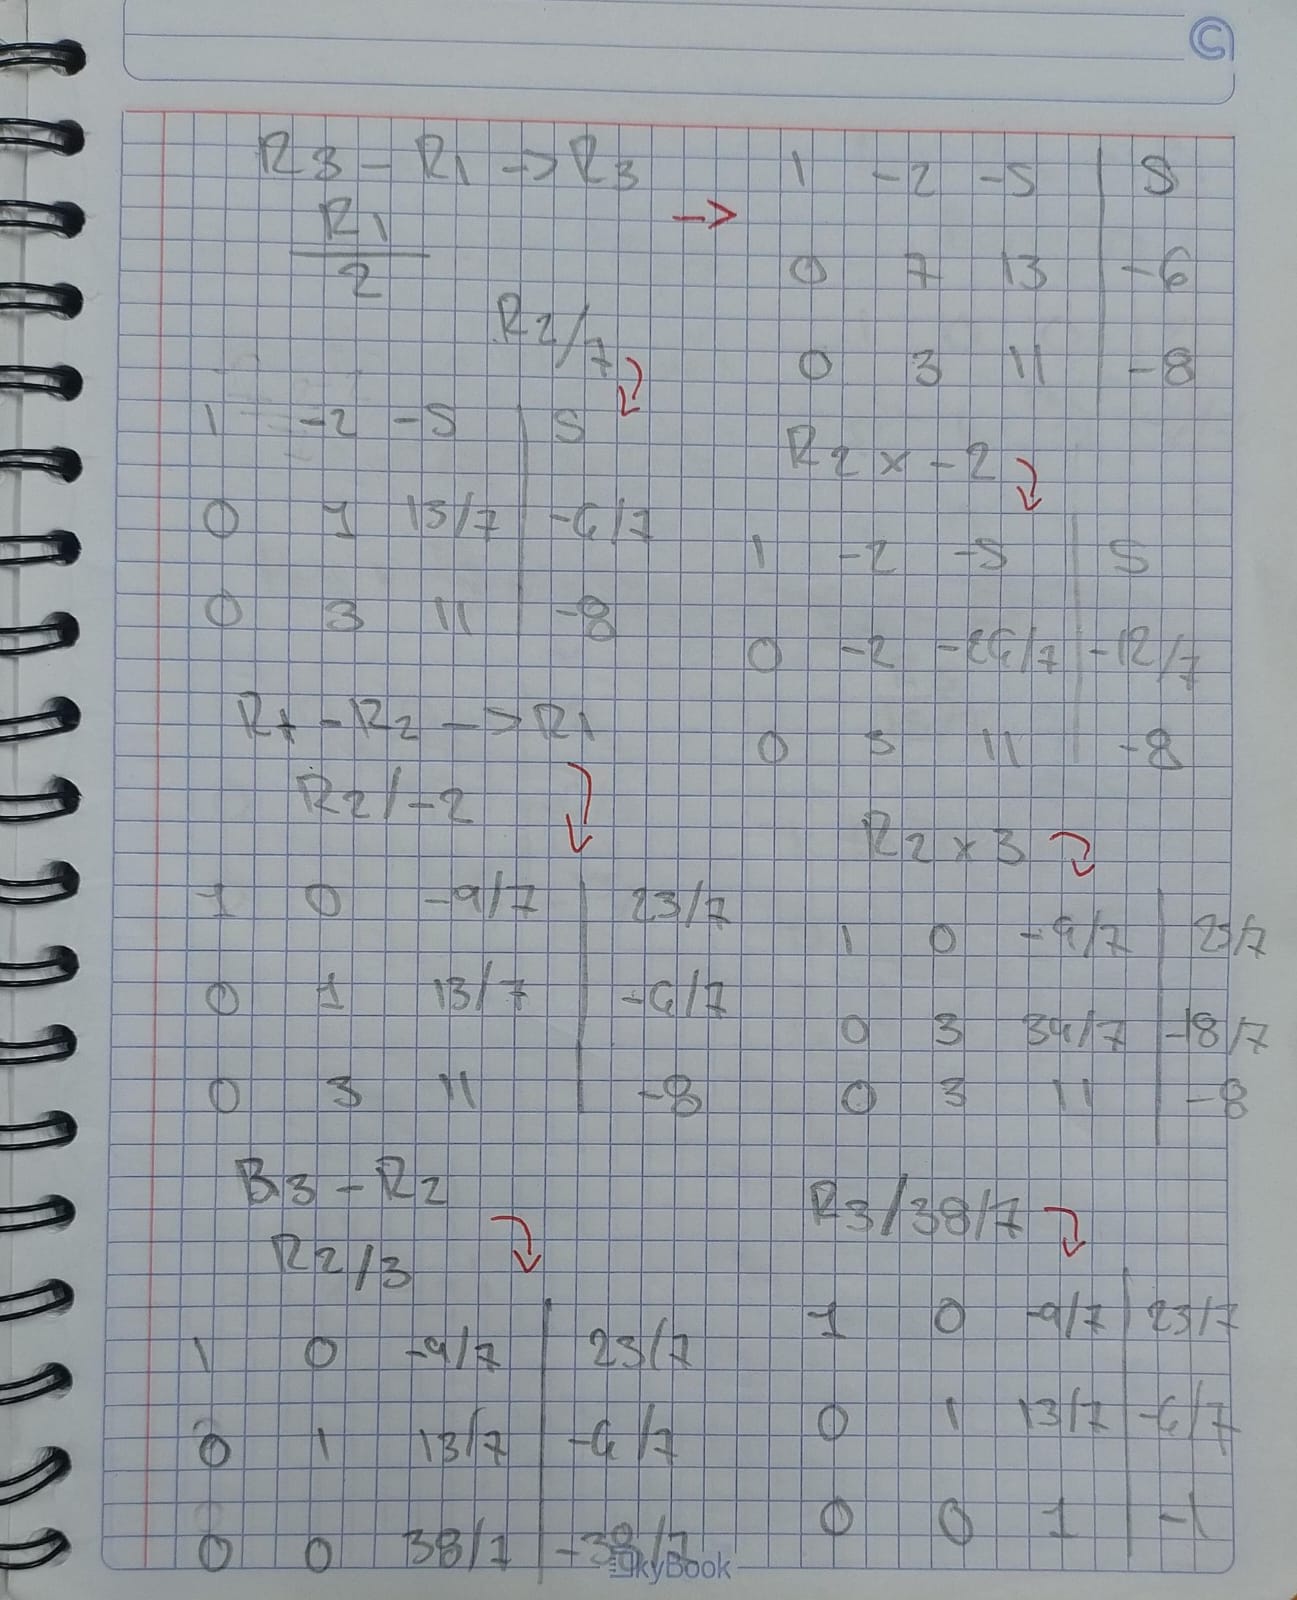 R3 - R1 -> R3
R1
2
->
1 -2 -5 | 5
0 7 13 | -6
0 3 11 | -8
R2/7
1 -2 -5 | 5
0 1 13/7 | -6/7
0 3 11 | -8
R2 x -2
1 -2 -5 | 5
0 -2 -26/7 | -12/7
0 3 11 | -8
R1 - R2 -> R1
R2/-2
1 0 -9/7 | 23/7
0 1 13/7 | -6/7
0 3 11 | -8
R2 x 3
1 0 -9/7 | 23/7
0 3 39/7 | -18/7
0 3 11 | -8
R3 - R2
R2/3
1 0 -9/7 | 23/7
0 1 13/7 | -6/7
0 0 38/7 | -38/7
R3/38/7
1 0 -9/7 | 23/7
0 1 13/7 | -6/7
0 0 1 | -1
SkyBook